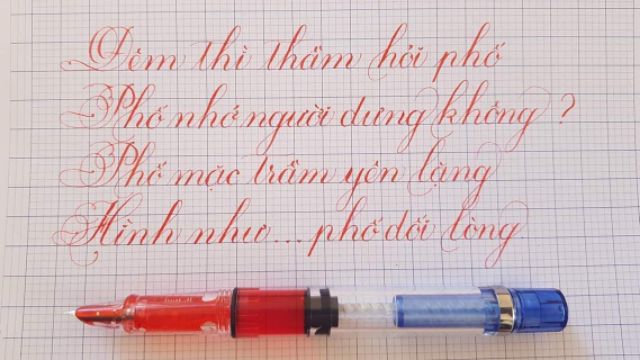 Đêm thì thầm hỏi phố
Phố nhớ người dưng không ?
Phố mặc trầm yên lặng
Hình như...phố dối lòng